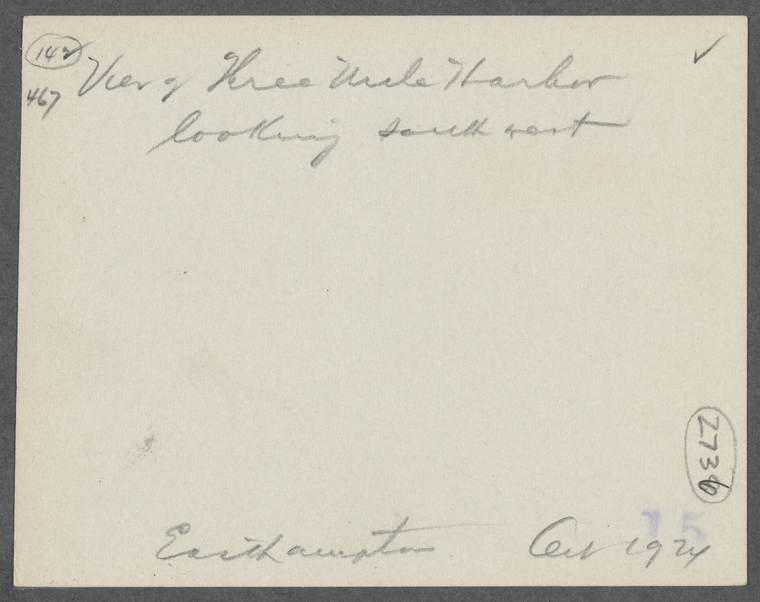 142
467
View of Three Mile Harbor
looking south west
273
Easthampton Oct 1924
15